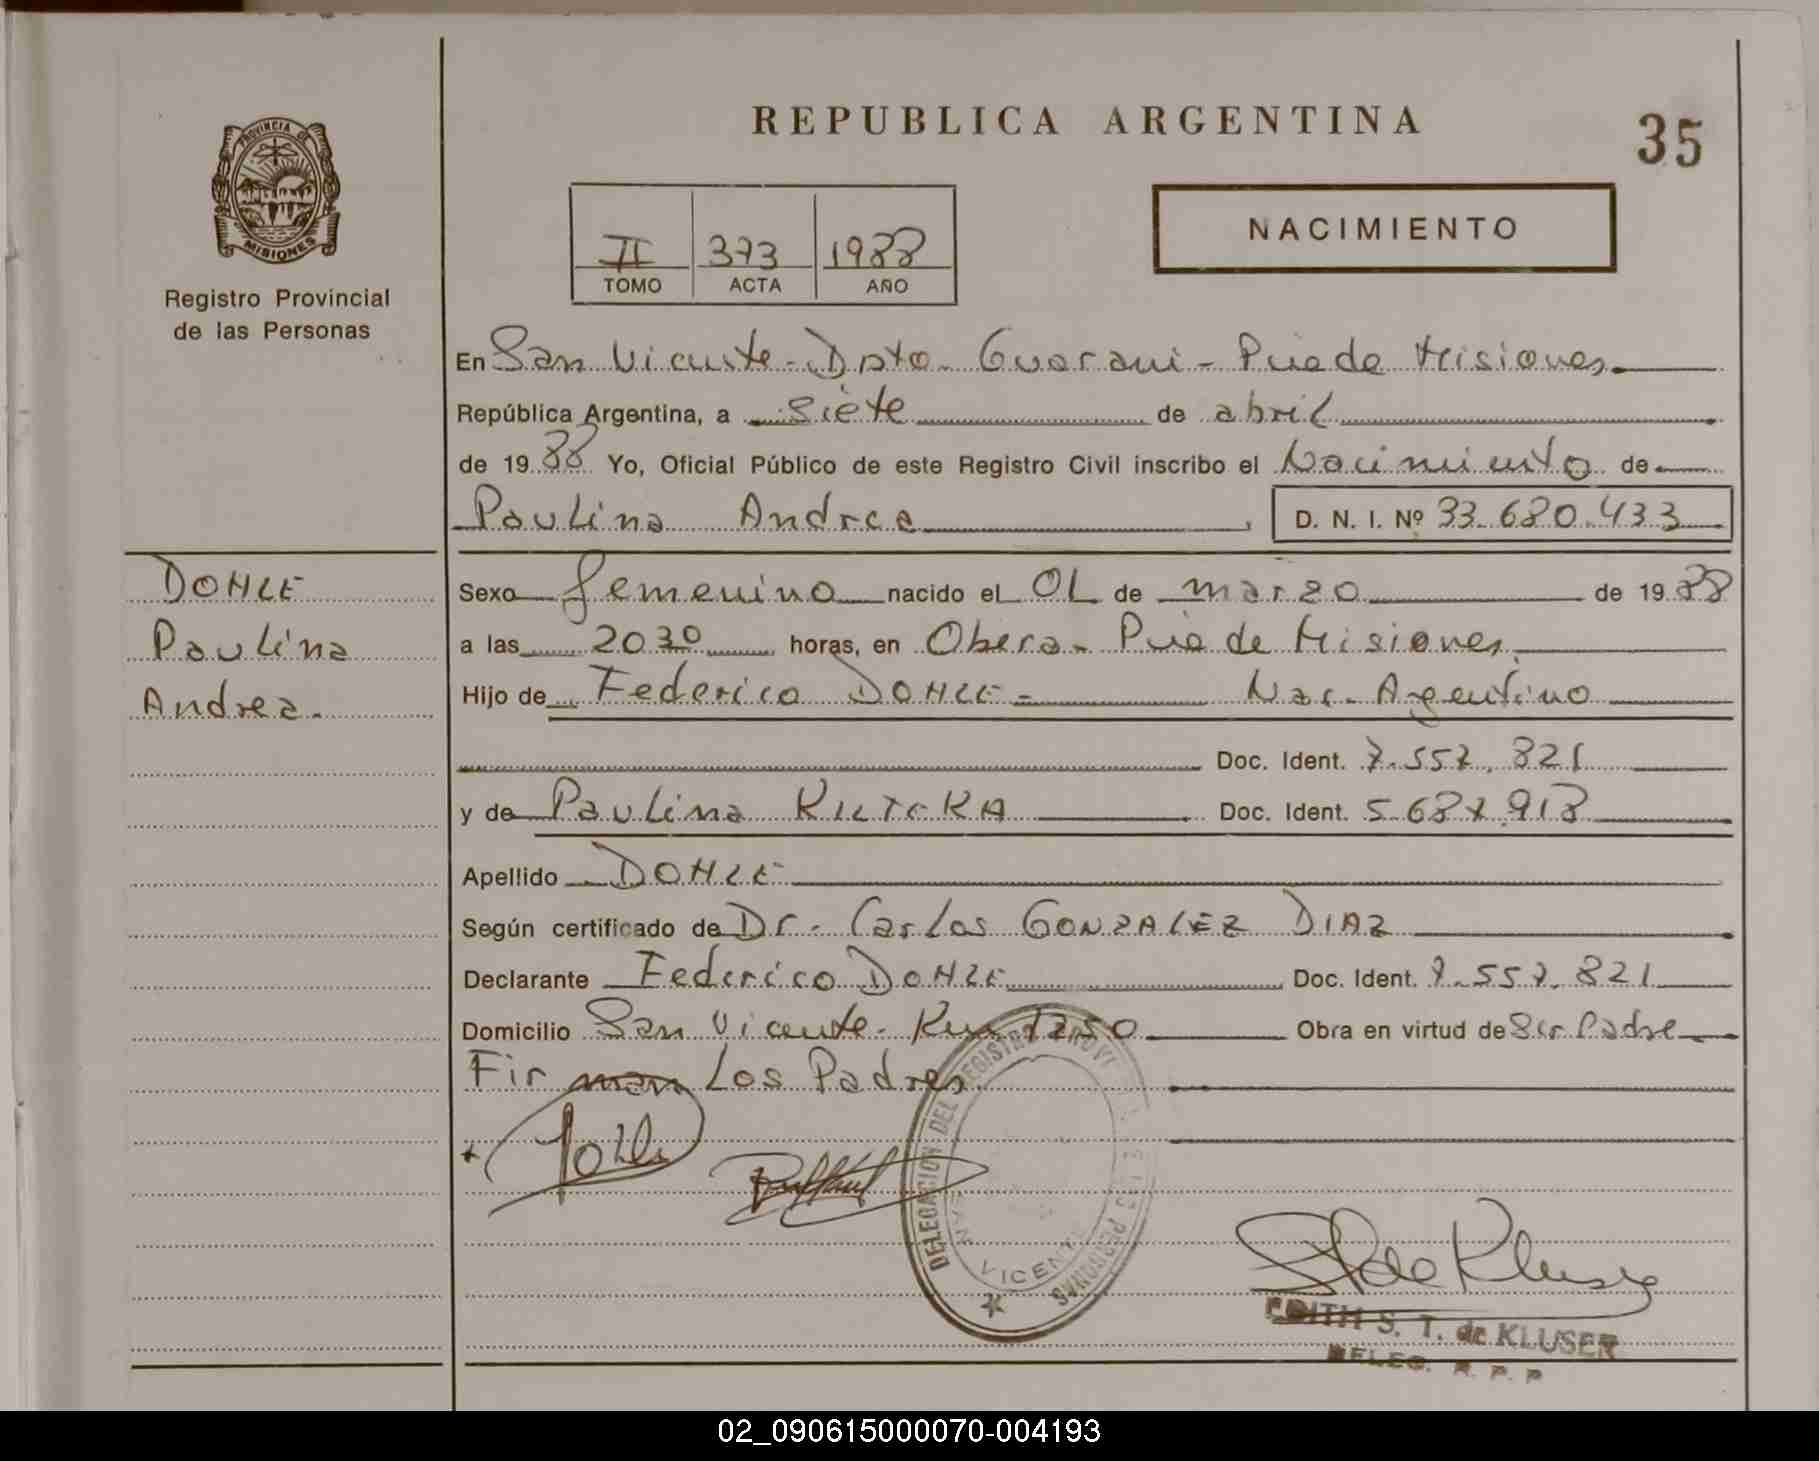 REPUBLICA ARGENTINA
35
PROVINCIA DE MISIONES
Registro Provincial
de las Personas
II 373 1988
TOMO ACTA AÑO
NACIMIENTO
En San Vicente - Dpto. Guarani - Pcia de Misiones
República Argentina, a siete de abril
de 1988 Yo, Oficial Público de este Registro Civil inscribo el Nacimiento de
Paulina Andrea D. N. I. Nº 33.680.433
DOHLE
Paulina
Andrea.
Sexo femenino nacido el 01 de marzo de 1988
a las 20 30 horas, en Obera - Pcia de Misiones
Hijo de Federico DOHLE - Nac. Argentino
Doc. Ident. 7.557.821
y de Paulina Doc. Ident. 5.687.918
Apellido DOHLE
Según certificado de Dr. Carlos GONZALEZ DIAZ
Declarante Federico DOHLE Doc. Ident. 7.557.821
Domicilio San Vicente - Km 1250 Obra en virtud de Ser Padre
Firman Los Padres
DELEGACION DEL REGISTRO PROVINCIAL DE LAS PERSONAS
SAN VICENTE
EDITH S. T. de KLUSER
DELEG. R. P. P
02_090615000070-004193